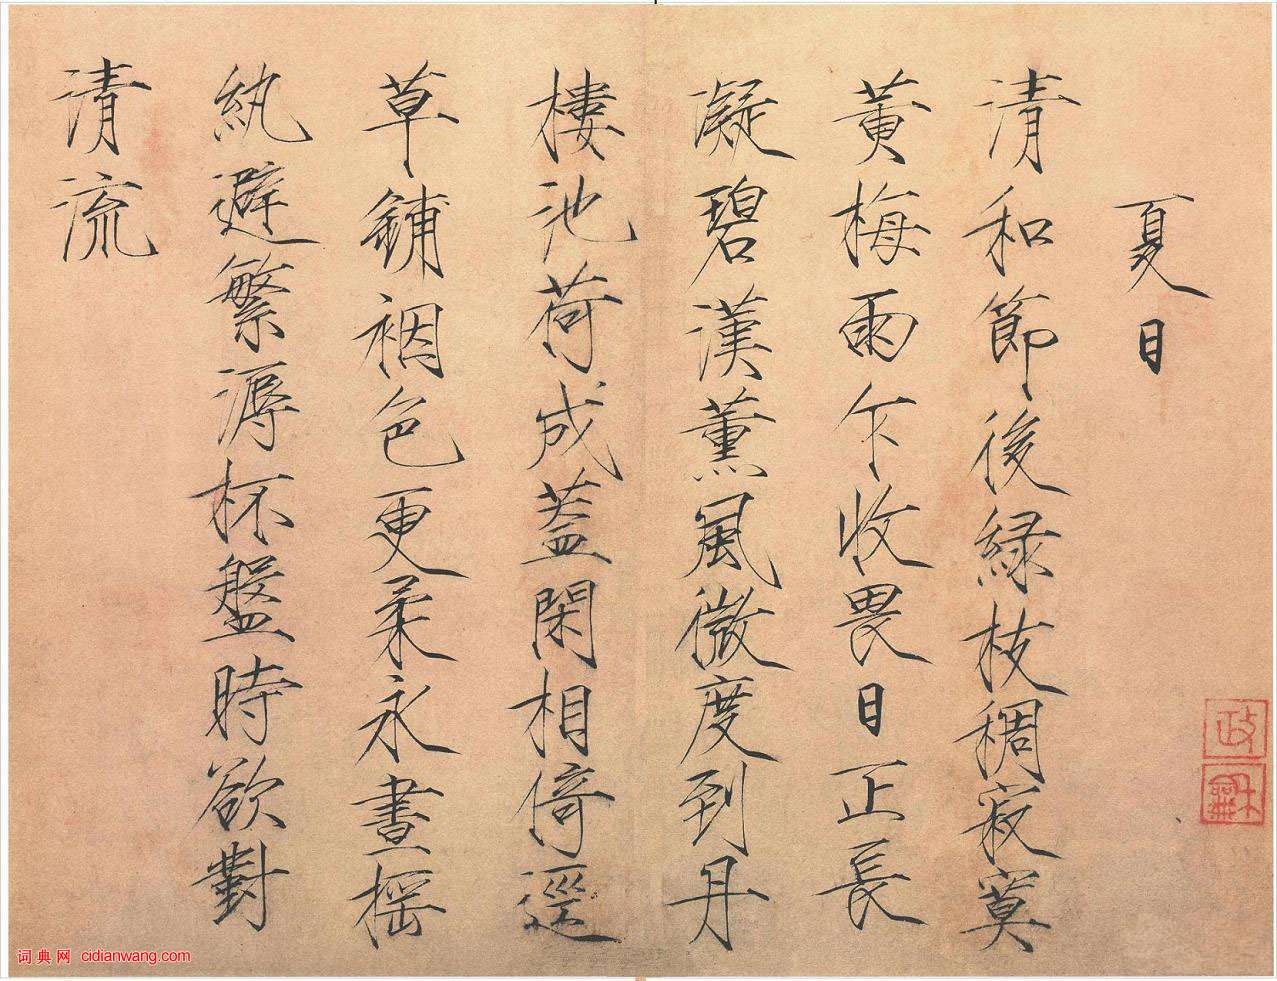 夏日
清和節後緑枝稠寂寞
黄梅雨乍收畏日正長
凝碧漢薰風微度到丹
樓池荷成蓋閑相倚逕
草鋪裀色更柔永晝摇
紈避繁溽杯盤時欲對
清流
政
龢
词典网 cidianwang.com